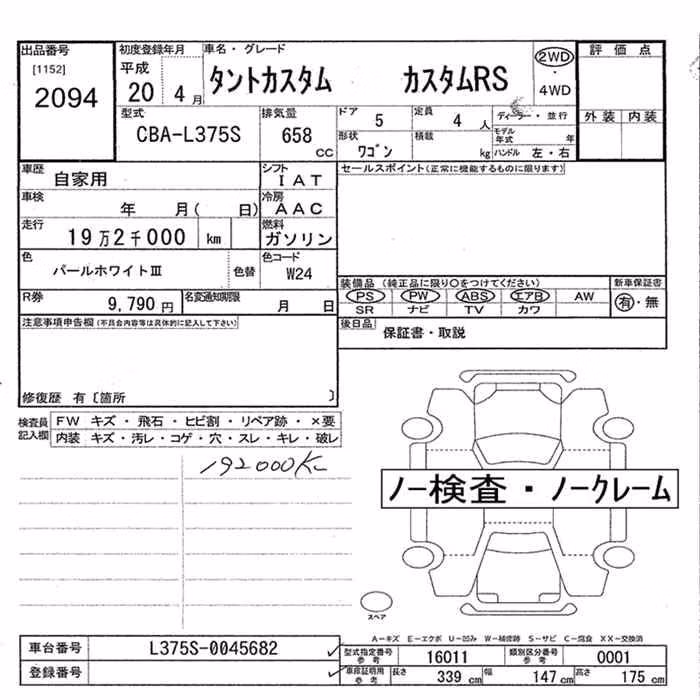 出品番号
[1152]
2094
初度登録年月
平成
20 4月
車名・グレード
タントカスタム カスタムRS
2WD
・
4WD
評価点
外装 内装
型式
CBA-L375S
排気量
658
CC
ドア
5
定員
4 人
ディーラー・並行
形状
ワゴン
積載
kg
モデル
年式
年
ハンドル 左・右
車歴
自家用
シフト
IAT
セールスポイント(正常に機能するものに限ります)
車検
年 月( 日)
冷房
AAC
走行
19万2千000 km
燃料
ガソリン
色
パールホワイトⅢ
色替
色コード
W24
装備品 (純正品に限り○をつけてください)
新車保証書
PS PW ABS エアB AW
有・無
SR ナビ TV カワ
R券
9,790 円
名変通知期限
月 日
後日品
保証書・取説
注意事項申告欄(不具合内容等は具体的に記入して下さい)
修復歴 有〔箇所 〕
検査員
記入欄
FW キズ・飛石・ヒビ割・リペア跡・×要
内装 キズ・汚レ・コゲ・穴・スレ・キレ・破レ
192000K
ノー検査・ノークレーム
スペア
A−キズ E−エクボ U−凹み W−補修跡 S−サビ C−腐食 XX−交換済
車台番号
L375S-0045682
型式指定番号
参考
16011
類別区分番号
参考
0001
登録番号
車庫証明用
参考
長さ
339 cm
幅
147 cm
高さ
175 cm